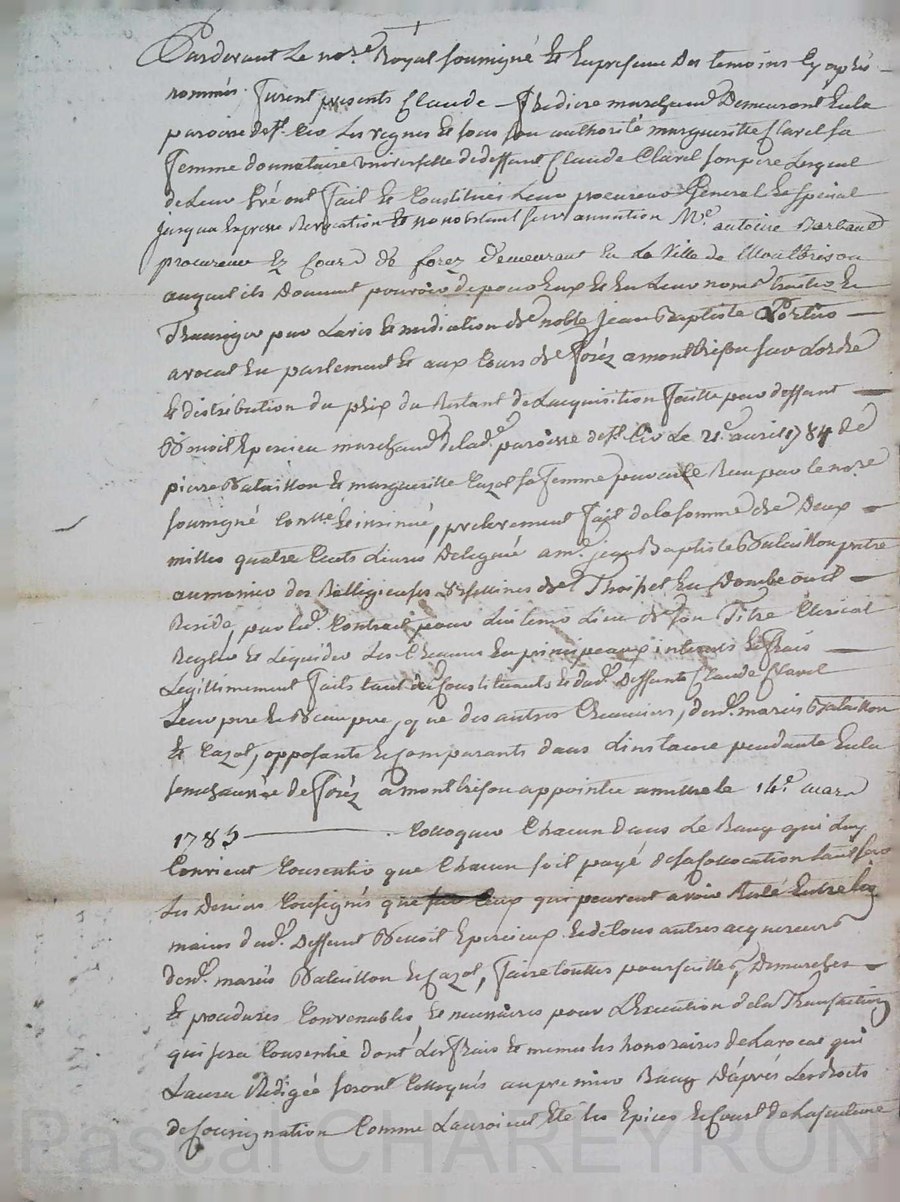 Pardevant le no.re Royal soussigné et en presence des temoins cy apres
nommés. furent presents Claude Thediere marchand demeurant en la
paroisse de St. les vignes et sous son authorité margueritte Clavel sa
femme donnataire universelle de deffunt Claude Clavel son pere lesquels
de leur gré ont fait et constitués leur procureur General et special
jusqua expresse Revocation et nonobstant surannation Me. antoine Barbaud
procureur ez cours de forez demeurant en la ville de Montbrison
auquel ils donnent pouvoir de pour eux et en leur noms traiter et
Transiger par lavis et mediation de noble jean Baptiste Portier
avocat en parlement et aux Cours de forez a montbrison sur lordre
et distribution du prix du Restant de lacquisition faitte par deffunt
Benoit Epercieu marchand de lad.e paroisse de St. Cir le 21.e avril 1784 de
pierre Bataillon et margueritte Cazol sa femme par acte Recu par le no.re
soussigné Contlé. et insinué, prelevement fait de la somme de Deux
milles quatre Cents livres deleguée a mr. jean Baptiste Bataillon pretre
aumonier des Relligieuses de en Dombe ou il
Reside, par led. Contrait pour luy tenir lieu de son Titre Clerical
Regler et liquider les Creances en principeaux interets et frais
legittimement faits tant des Constituants et dud. deffunt Claude Clavel
leur pere et Beaupere, que des autres Creanciers, desd. mariés Bataillon
et Cazol, opposants et comparants dans linstance pendante en la
senechaussée de forez a montbrison appointée a mettre le 14.e mars
1785 Colloquer Chacun dans le Rang qui luy
Convient Consentir que Chacun soit payé de sa Collocation tant sur
les deniers Consignés que sur Ceux qui peuvent avoir Resté entre les
mains dud. deffunt Benoit Epercieux et de tous autres acquereurs
desd. mariés Bataillon et Cazol, faire touttes poursuittes, demarches
et procedures Convenables et necessaires pour l'Execution de la Transaction
qui sera Consentie dont les frais et memes les honoraires de lavocat qui
Laura Redigée seront Colloqués au premier Rang d'aprés les droits
de Consignation Comme lauroient Eté les Epices et Cout de la sentence
Pascal CHAREYRON